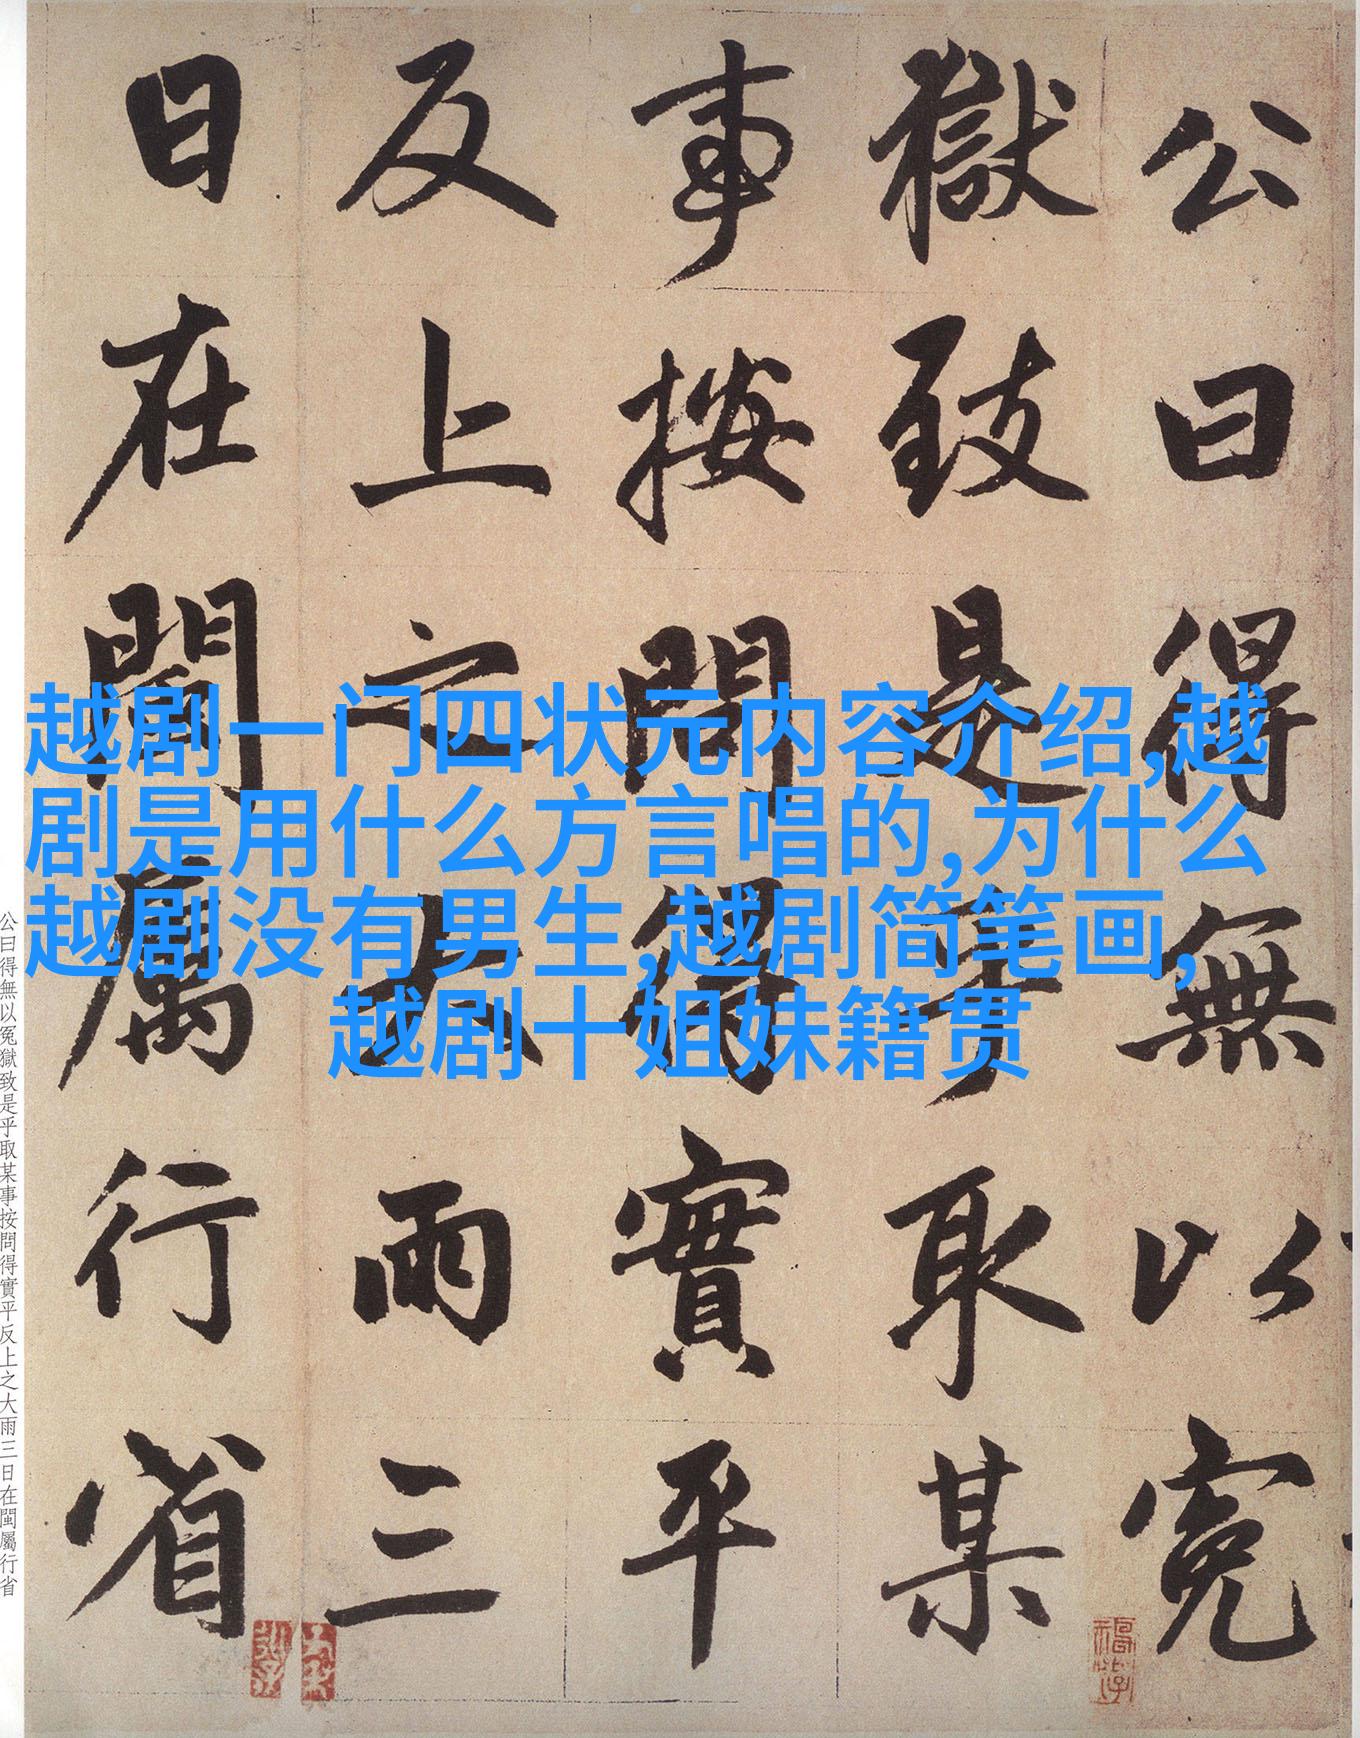 公曰得無以冤
獄致是乎取某
事按問得實平
反上之大雨三
日在閩屬行省
越剧一门四状元内容介绍,越
剧是用什么方言唱的,为什么
越剧没有男生,越剧简笔画,
越剧十姐妹籍贯
公曰得無以冤獄致是乎取某事按問得實平反上之大雨三日在閩屬行省